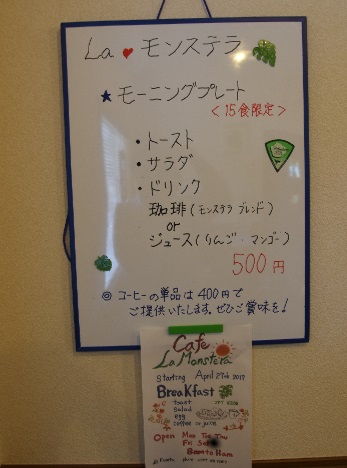 La ♥ モンステラ
★ モーニングプレート
<15食限定>
・トースト
・サラダ
・ドリンク
珈琲(モンステラ ブレンド)
or
ジュース(りんご・マンゴー)
500円
◎ コーヒーの単品は400円で
ご提供いたします。ぜひご賞味を!
Cafe
La Monstera
Starting April 27th 2017
Breakfast
toast
salad
egg
coffee or juice
Open Mon Tue Thu
Fri